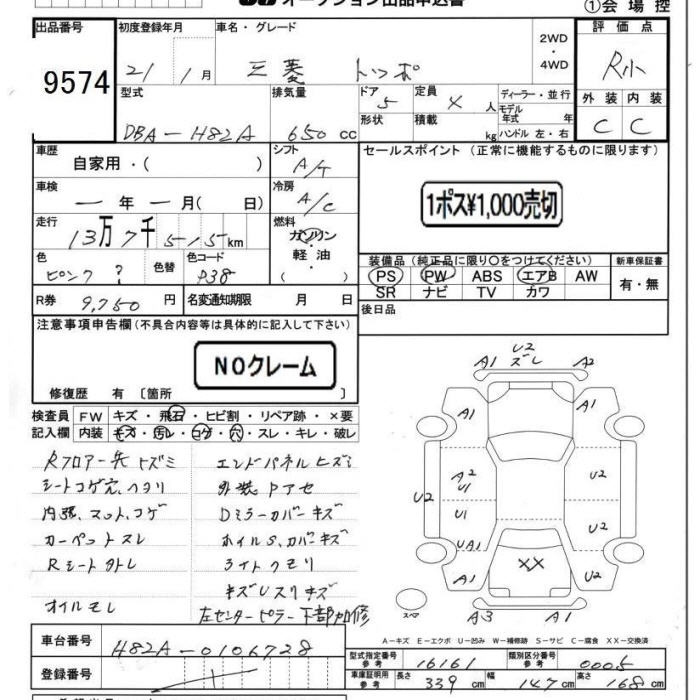 オークション出品申込書
①会場控
出品番号 初度登録年月 車名・グレード 2WD・4WD 評価点
9574 21年 1月 三菱 トッポ R小
型式 排気量 ドア 定員 ディーラー・並行 外装 内装
DBA-H82A 650 cc 5 4人 モデル年式 年 C C
形状 積載 kg ハンドル 左・右
車歴 シフト セールスポイント (正常に機能するものに限ります)
自家用・( ) A/T
車検 冷房 1ポス¥1,000売切
一年一月( 日) A/C
走行 燃料
13万7千515km ガソリン・軽油・( )
色 色替 色コード 装備品(純正品に限り○をつけてください) 新車保証書
ピンク ? P38 PS PW ABS エアB AW 有・無
SR ナビ TV カワ
R券 9,750円 名変通知期限 月 日 後日品
注意事項申告欄(不具合内容等は具体的に記入して下さい)
NOクレーム
修復歴 有 〔箇所 〕
検査員 FW キズ・飛石・ヒビ割・リペア跡・×要
記入欄 内装 キズ・汚レ・コゲ・穴・スレ・キレ・破レ
Rフロアー先ヒズミ エンドパネルヒズミ
シートコゲ穴、ヘタリ 外装Pアセ
内張、マット、コゲ Dミラーカバーキズ
カーペットスレ ホイルS、カバーキズ
Rシート外レ ライトクモリ
キズUスリキズ
オイルモレ 左センターピラー下部加修
U2
A1 ズレ A2
A1 A1
A2 U2
U1
U2 U2
U1 U2
UA1
XX
A1 U2
スペア A3 A1
A-キズ E-エクボ U-凹み W-補修跡 S-サビ C-腐食 XX-交換済
車台番号 H82A-0106728
型式指定番号 参考 16161 類別区分番号 参考 0005
登録番号 車庫証明用 参考 長さ 339cm 幅 147cm 高さ 168cm